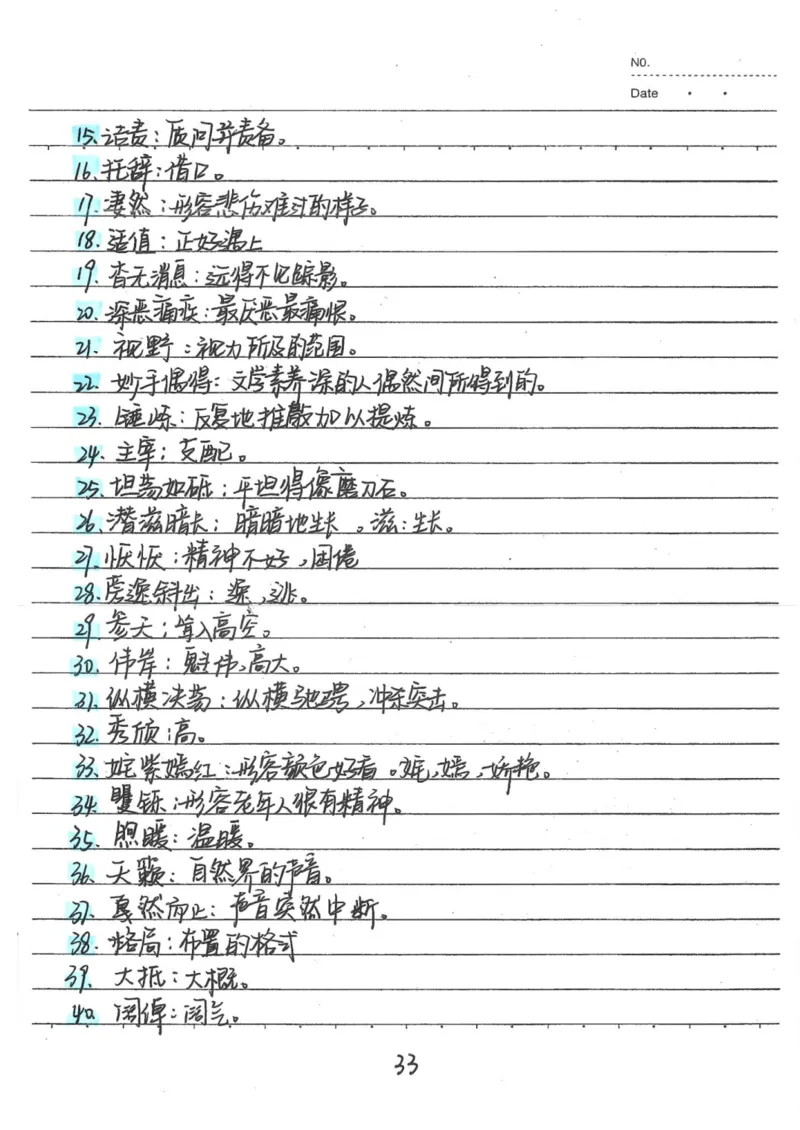 NO.
Date
15.诘责：质问并责备。
16.托辞：借口。
17.凄然：形容悲伤难过的样子。
18.适值：正好遇上
19.杳无消息：远得不见踪影。
20.深恶痛疾：最厌恶最痛恨。
21.视野：视力所及的范围。
22.妙手偶得：文学素养深的人偶然间所得到的。
23.锤炼：反复地推敲加以提炼。
24.主宰：支配。
25.坦荡如砥：平坦得像磨刀石。
26.潜滋暗长：暗暗地生长。滋：生长。
27.恹恹：精神不好，困倦
28.旁逸斜出：逸，逃。
29.参天：耸入高空。
30.伟岸：魁伟，高大。
31.纵横决荡：纵横驰骋，冲杀突击。
32.秀颀：高。
33.姹紫嫣红：形容颜色好看。姹，嫣，娇艳。
34.矍铄：形容老年人很有精神。
35.煦暖：温暖。
36.天籁：自然界的声音。
37.戛然而止：声音突然中断。
38.格局：布置的格式
39.大抵：大概。
40.阔绰：阔气。
33